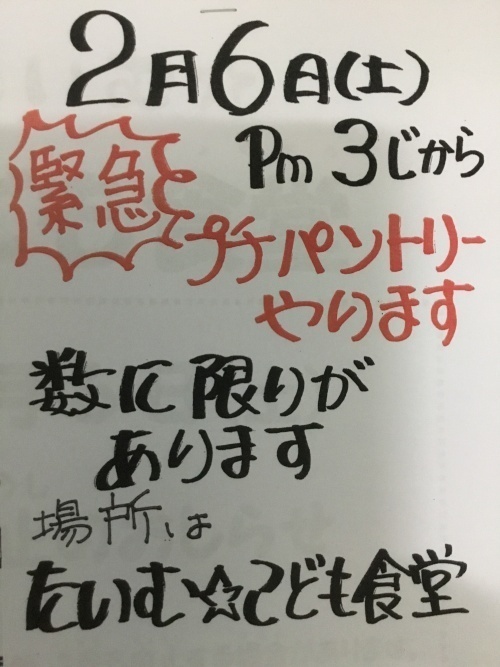 2月6日(土)
Pm 3じから
緊急
プチパントリー
やります
数に限りが
あります
場所は
たいむ☆こども食堂